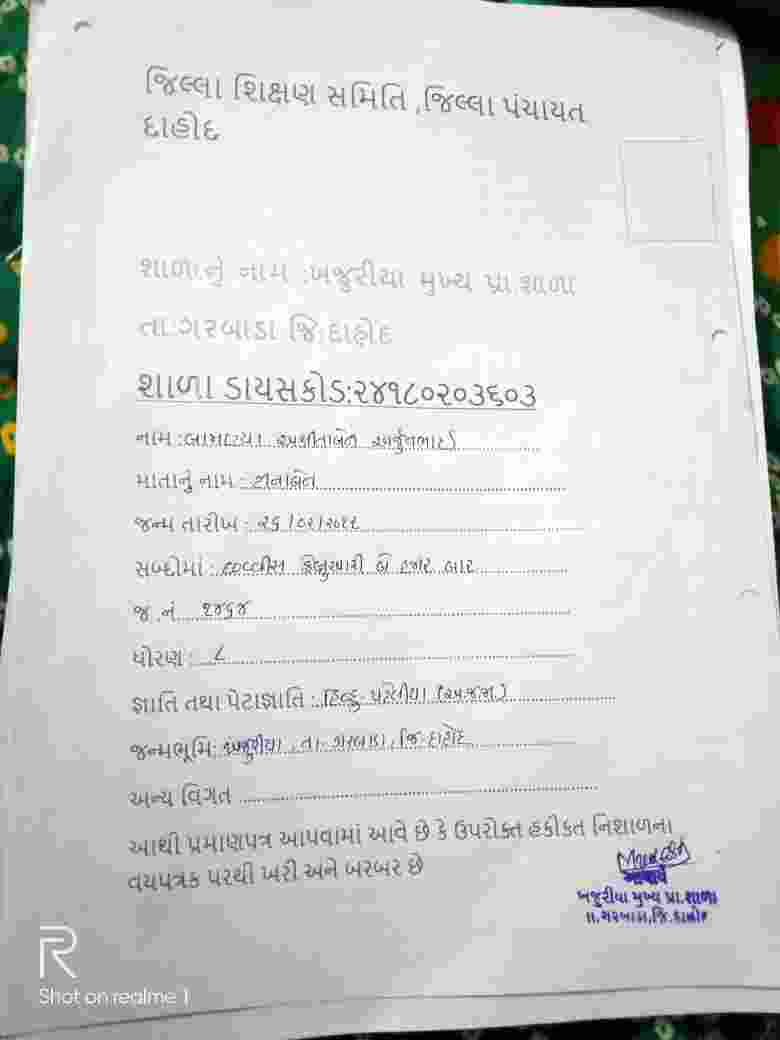 જિલ્લા શિક્ષણ સમિતિ ,જિલ્લા પંચાયત
દાહોદ
શાળાનું નામ :ખજુરીયા મુખ્ય પ્રા શાળા
તા.ગરબાડા જિ:દાહોદ
શાળા ડાયસકોડ:૨૪૧૮૦૨૦૩૬૦૩
નામ : અર્જુનભાઈ
માતાનું નામ : ટીનાબેન
જન્મ તારીખ : ૨૬/૦૨/૨૦૧૨
સબ્દોમાં : છવ્વીસ ફેબ્રુઆરી બે હજાર બાર
જ .નં ૧૪૬૪
ધોરણ : ૮
જ્ઞાતિ તથા પેટાજ્ઞાતિ : હિન્દુ પટેલીયા (અ.જ.જા)
જન્મભૂમિ: ખજુરીયા , તા ગરબાડા , જિ દાહોદ
અન્ય વિગત
આથી પ્રમાણપત્ર આપવામાં આવે છે કે ઉપરોક્ત હકીકત નિશાળના
વયપત્રક પરથી ખરી અને બરબર છે
આચાર્ય
ખજુરીયા મુખ્ય પ્રા.શાળા
તા.ગરબાડા,જિ.દાહોદ
R
Shot on realme 1